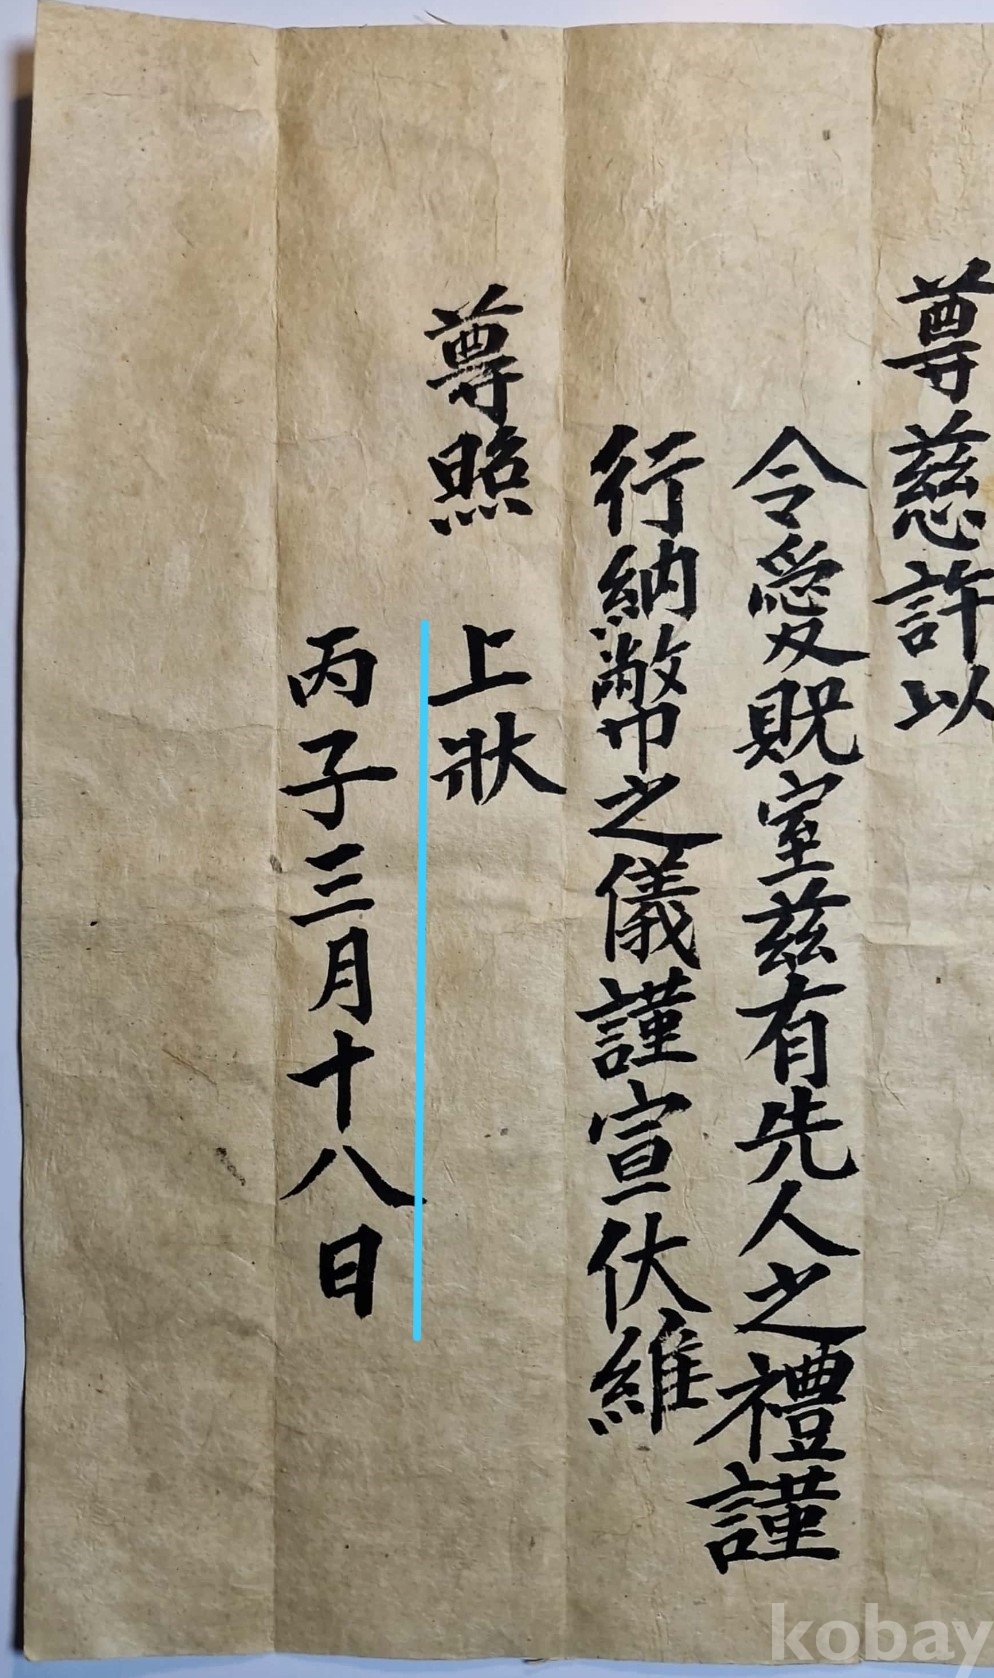 尊慈許以
令愛貺室茲有先人之禮謹
行納幣之儀謹宣伏維
尊照 上狀
丙子三月十八日
kobay